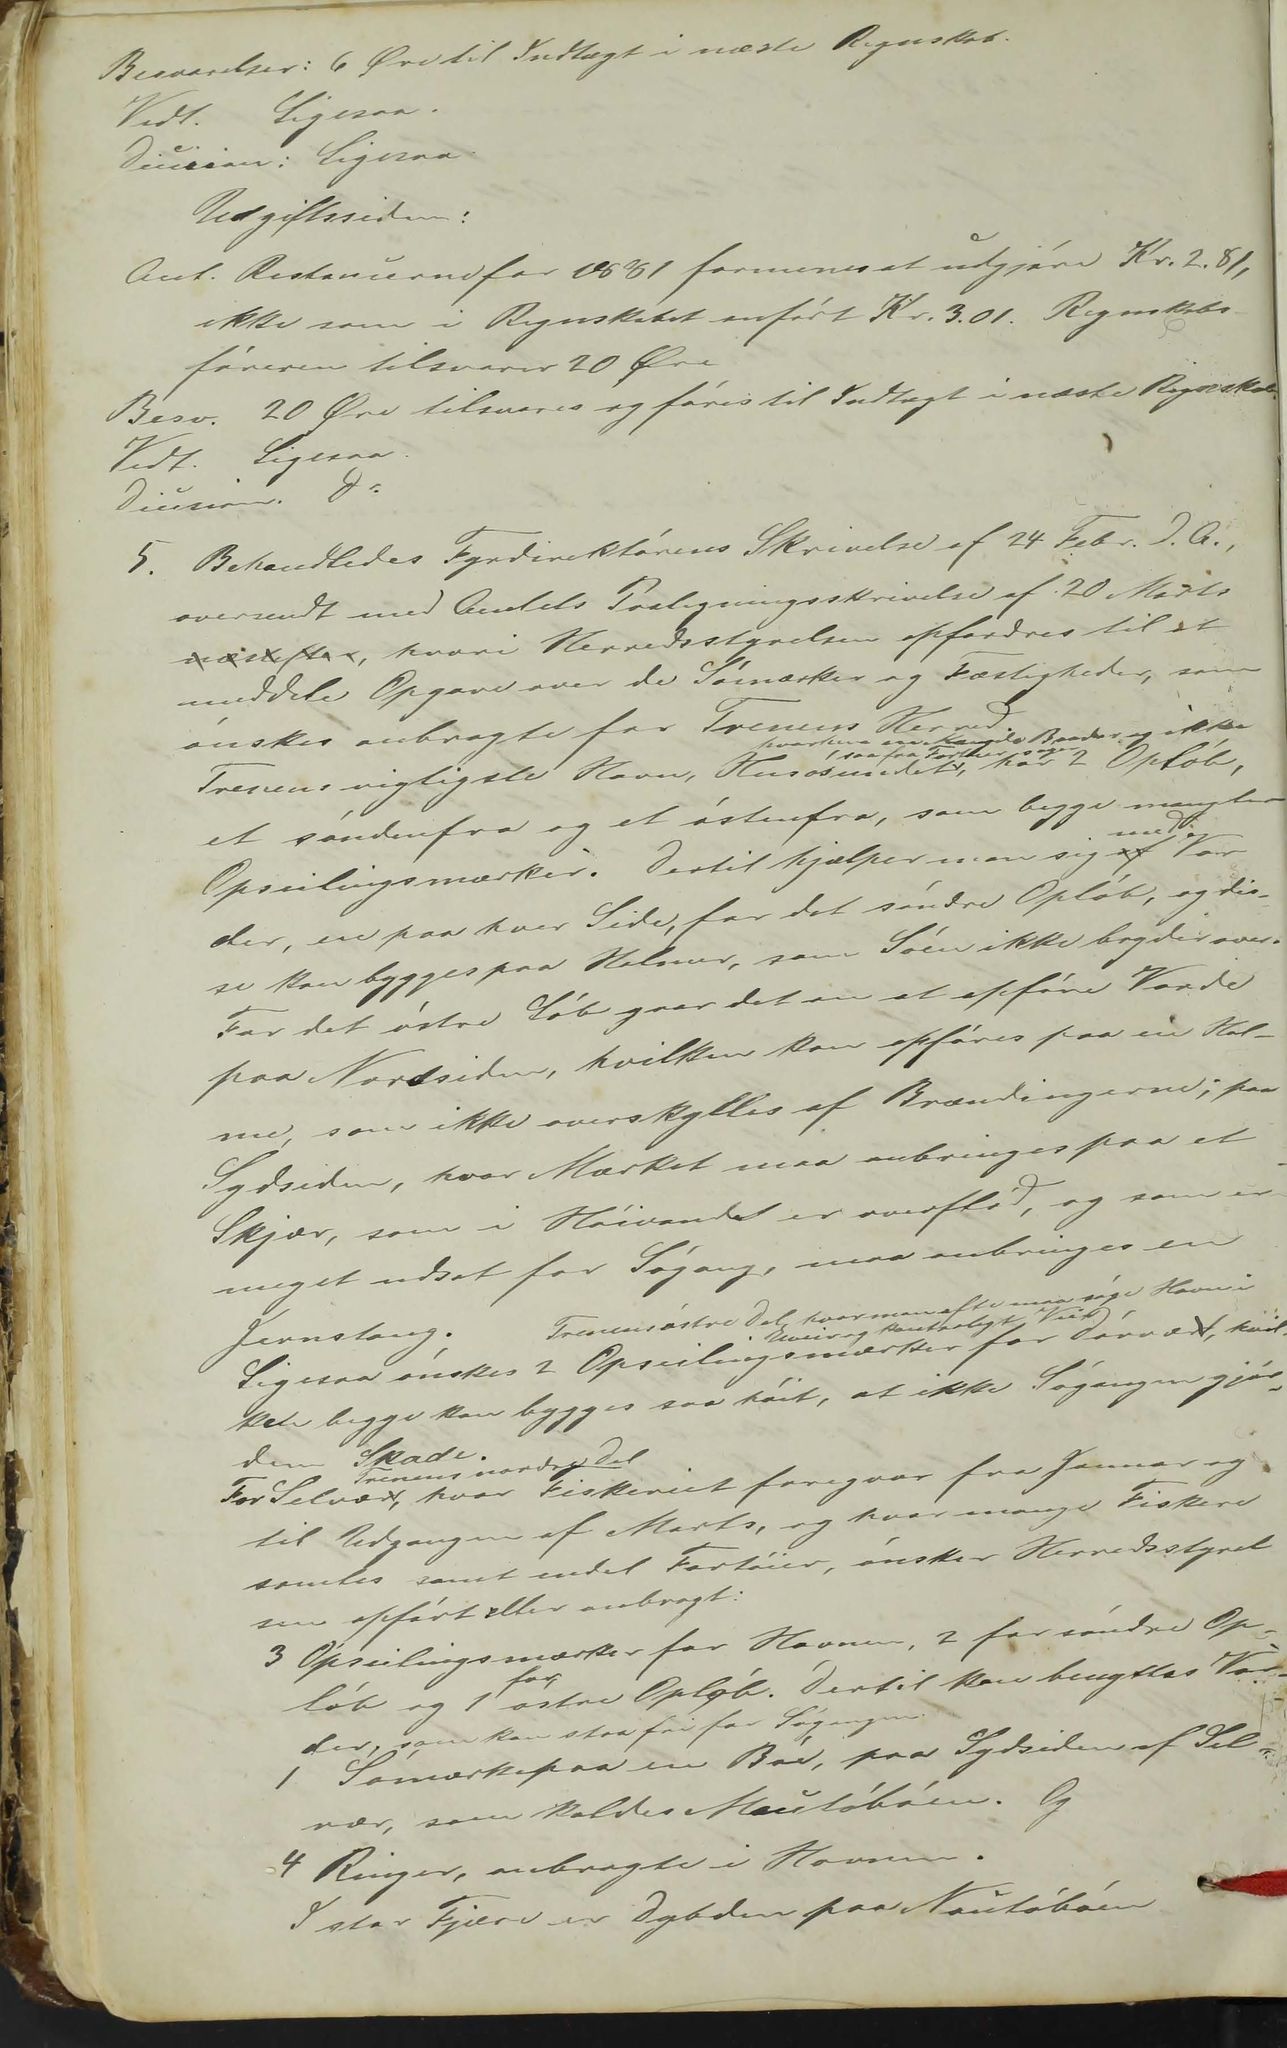 Besvarelser: 6 Øre til Indtægt i næste Regnskab.
Vedt. Ligesaa.
Dicision: Ligesaa.
Udgiftssiden:
Ant. Restancerne for 1881 formenes at udgjöre Kr. 2.81,
ikke som i Regnskabet anfört Kr. 3.01. Regnskabs-
föreren tilsvarer 20 Øre
Besv. 20 Øre tilsvares og föres til Indtægt i næste Regnskab.
Vedt. Ligesaa.
Dicision. Do
5. Behandledes Fyrdirektörens Skrivelse af 24 Febr. d. A.,
oversendt med Amtets Paategningsskrivelse af 20 Marts
næstefter, hvori Herredsstyrelsen opfordres til at
meddele Opgave over de Sömærker og Fæstigheder, som
önskes anbragte for Trenens Herred
Trenens vigtigste Havn, Husösundet, har 2 Opløb,
et söndenfra og et östenfra, som begge mangler
Opseilingsmærker. Dertil hjælper man sig med Var
der, en paa hver Side, for det söndre Opløb, og dis-
se kan bygges paa Holmer, som Söen ikke bryder over.
For det östre Løb gaar det an at opføre Varde
paa Nordsiden, hvilken kan opføres paa en Hol-
me, som ikke overskylles af Brændingerne; paa
Sydsiden, hvor Mærket maa anbringes paa et
Skjær, som i Höivandet er overflöd, og som er
meget udsat for Sögang, maa anbringes en
Jernstang.
Trenens östre Del, hvor man ofte maa söge Havn i
Uveir og kontrabygt Vind
Ligesaa önskes 2 Opseilingsmærker for Dörvær, hvil-
ke begge kan bygges saa höit, at ikke Sögangen gjör
dem Skade.
Trenens nordre Del
For Selvær, hvor Fiskeriet foregaar fra Januar og
til Udgangen af Marts, og hvor mange Fiskere
samles samt endel Fartöier, önsker Herredsstyrel
sen opfört eller anbragt:
3 Opseilingsmærker for Havnen, 2 for söndre Op-
löb og 1 for östre Opløb. Dertil kan benyttes Var-
der, som kan staa fri for Sögangen
1 Sömærke paa en Böe, paa Sydsiden af Sel-
vær, som kaldes Nautöböen. Og
4 Ringer, anbragte i Havnen.
I stor Fjære er Dybden paa Nautöböen